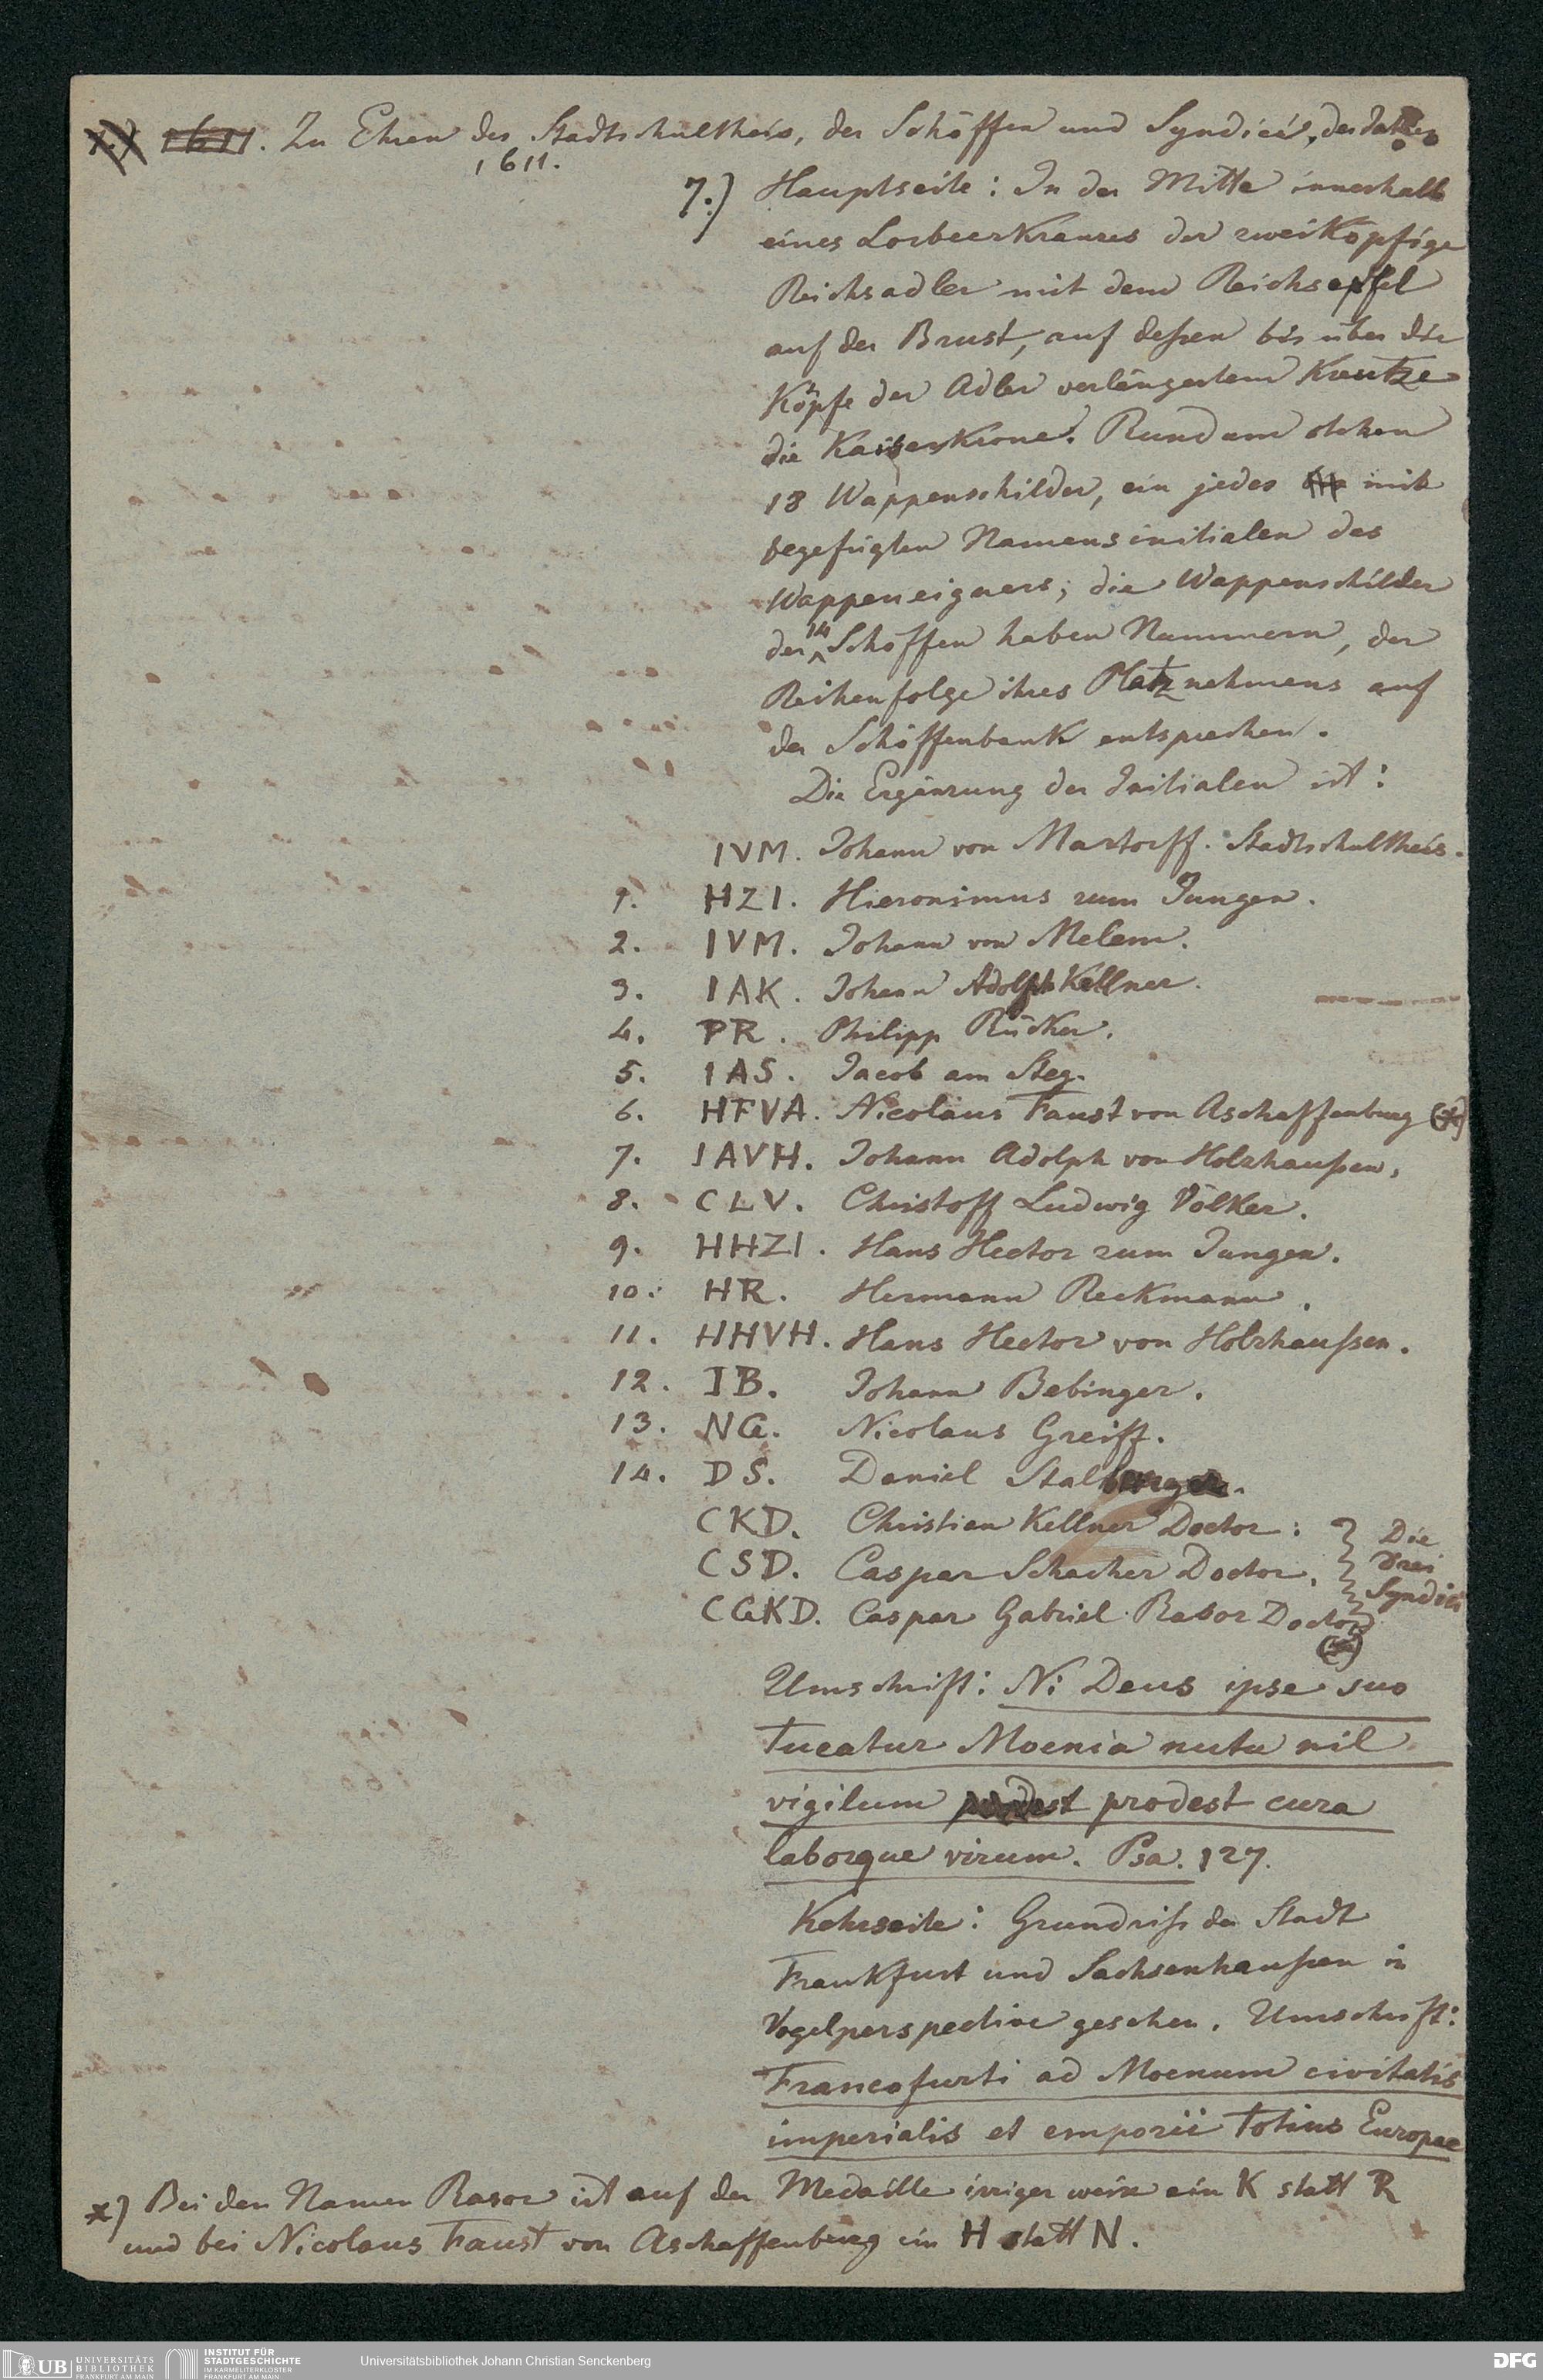 1611. Zu Ehren des Stadtschultheis, der Schöffen und Syndici,
1611.
7.) Hauptseite: In der Mitte innerhalb
eines Lorbeerkranzes der zweiköpfige
Reichsadler mit dem Reichsapfel
auf der Brust, auf deßen bis über die
Köpfe der Adler verlängertem Kreutze
die Kaiserkrone. Rund um stehen
18 Wappenschilder, ein jedes mit
begefügten Namensinitialen des
Wappeneigners; die Wappenschilder
der 14 Schöffen haben Nummern, der
Reihenfolge ihres Platznehmens auf
der Schöffenbank entsprechen.
Die Ergänzung der Initialen ist:
IVM. Johann von Martorff. Stadtschultheis.
1. HZI. Hieronimus zum Jungen.
2. IVM. Johann von Melem.
3. IAK. Johann Adolph Kellner.
4. PR. Philipp Rücker.
5. IAS. Jacob am Steg.
6. HFVA. Nicolaus Faust von Aschaffenburg (*)
7. IAVH. Johann Adolph von Holzhaußen.
8. CLV. Christoff Ludwig Völker.
9. HHZI. Hans Hector zum Jungen.
10. HR. Hermann Reckmann.
11. HHVH. Hans Hector von Holzhaußen.
12. IB. Johann Bebinger.
13. NG. Nicolaus Greiff.
14. DS. Daniel Stalburger.
CKD. Christian Kellner Doctor. } Die
CSD. Caspar Schacher Doctor. } drei
CGKD. Caspar Gabriel Rasor Doctor } Syndici
(*)
Umschrift: Ni Deus ipse suo
tueatur Moenia nutu nil
vigilum prodest cura
laborque virum. Psa. 127.
Kehrseite: Grundriß der Stadt
Frankfurt und Sachsenhaußen in
Vogelperspective gesehen. Umschrift:
Francofurti ad Moenum civitatis
imperialis et emporii totius Europae
*) Bei den Namen Rasor ist auf der Medaille irriger weise ein K statt R
und bei Nicolaus Faust von Aschaffenburg ein H statt N.
UB UNIVERSITÄTS
BIBLIOTHEK
FRANKFURT AM MAIN
INSTITUT FÜR
STADTGESCHICHTE
IM KARMELITERKLOSTER
FRANKFURT AM MAIN
Universitätsbibliothek Johann Christian Senckenberg
DFG